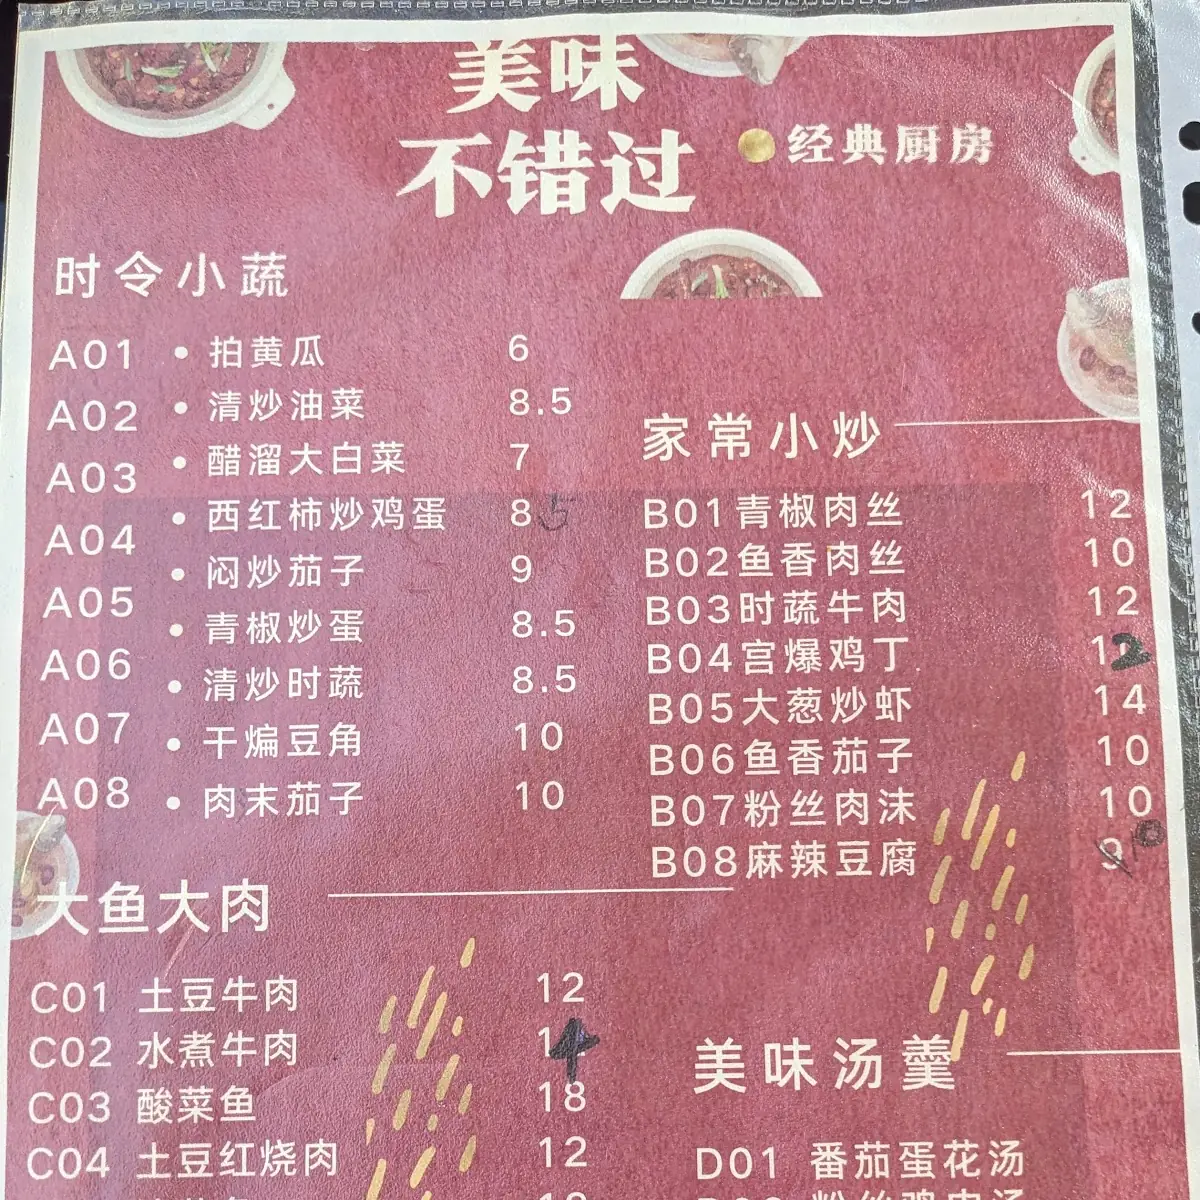 美味
不错过
经典厨房
时令小蔬
A01 • 拍黄瓜 6
A02 • 清炒油菜 8.5
A03 • 醋溜大白菜 7
A04 • 西红柿炒鸡蛋 8.5
• 闷炒茄子 9
A05 • 青椒炒蛋 8.5
A06 • 清炒时蔬 8.5
A07 • 干煸豆角 10
A08 • 肉末茄子 10
家常小炒
B01青椒肉丝 12
B02鱼香肉丝 10
B03时蔬牛肉 12
B04宫爆鸡丁 12
B05大葱炒虾 14
B06鱼香茄子 10
B07粉丝肉沫 10
B08麻辣豆腐 9 10
大鱼大肉
C01 土豆牛肉 12
C02 水煮牛肉 14
C03 酸菜鱼 18
C04 土豆红烧肉 12
美味汤羹
D01 番茄蛋花汤